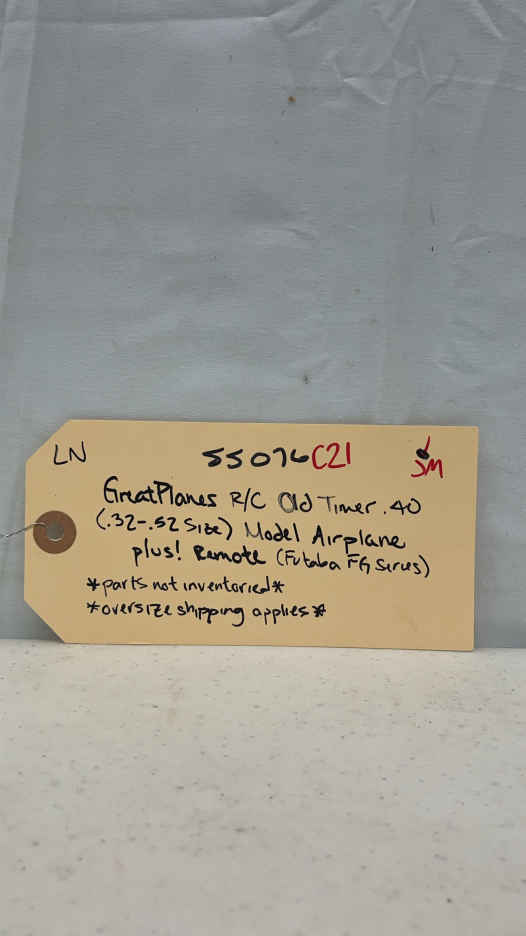 LN 55076 C21 JM
GreatPlanes R/C Old Timer .40
(.32-.52 Size) Model Airplane
plus! Remote (Futaba FG Series)
*parts not inventoried*
*oversize shipping applies*